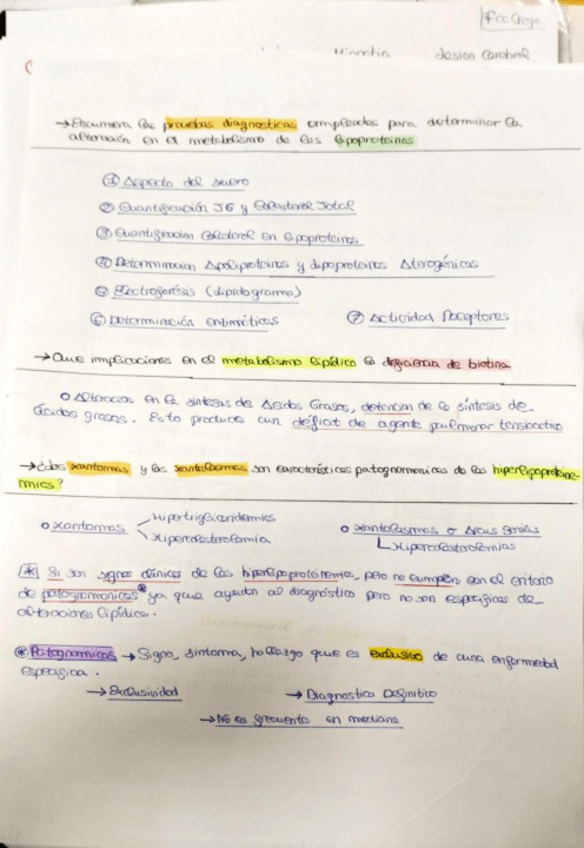 lesion Cerebral
→ Enumera las pruebas diagnosticas empleadas para determinar la
alteración en el metabolismo de las lipoproteinas
① Aspecto del suero
② Cuantificación TG y Colesterol Total
③ Cuantificacion Colesterol en lipoproteinas
④ Determinacion Apoliproteinas y lipoproteinas Aterogénicas
⑤ Electroforésis (lipidograma)
⑥ Determinación enzimáticas ⑦ Actividad Receptores
→ Que implicaciones en el metabolismo lipídico la deficiencia de biotina
o Alteracion en la sintesis de Acidos Grasos, detencion de la síntesis de
ácidos grasos. Esto produce un déficit de agente pulmonar tensioactivo
→ ¿Los xantomas y las xantelasmas son características patognomonicas de las hiperlipoproteine-
mias?
o xantomas Hipertrigliceridemias o xantelasmas o Arcus Senilis
Hipercolesterolemia Hipercolesterolemias
* Si son signos clínicos de las hiperlipoproteinemias, pero no cumplen con el criterio
de patognomonicas* ya que ayudan al diagnóstico pero no son especificas de
alteraciones lipídica.
* Patognomnicas → Signo, sintoma, hallazgo que es exclusivo de una enfermedad
especifica.
→ Exclusividad → Diagnostico Definitivo
→ No es frecuente en medicina